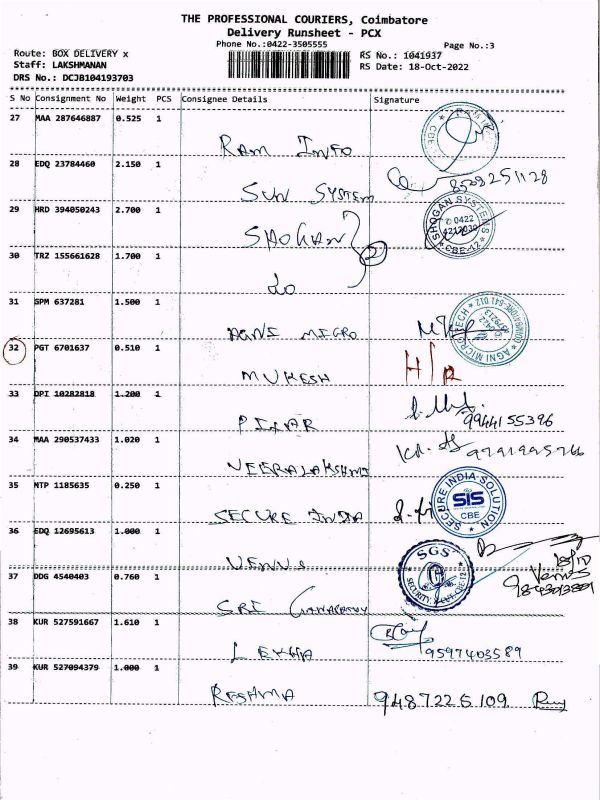 THE PROFESSIONAL COURIERS, Coimbatore
Delivery Runsheet - PCX
Phone No.:0422-3505555
Page No.:3
Route: BOX DELIVERY x
RS No.: 1041937
Staff: LAKSHMANAN
RS Date: 18-Oct-2022
DRS No.: DCJB104193703
S No Consignment No Weight PCS Consignee Details Signature
27 MAA 287646887 0.525 1
RAM INFO
28 EDQ 23784460 2.150 1
SUN SYSTEM
29 HRD 394050243 2.700 1
SHOGAN
SHOGAN SYSTEMS
0422
CBE-12
30 TRZ 155661628 1.700 1
2
DO
31 SPM 637281 1.500 1
AGNI MICRO
AGNI MICRO TECH
COIMBATORE-641 012
32 PGT 6701637 0.510 1
MUKESH
33 DPI 10282818 1.200 1
9944155396
34 MAA 290537433 1.020 1
VEERALAKSHMI
35 NTP 1185635 0.250 1
SECURE INDIA
SECURE INDIA SOLUTION
SIS
CBE
36 EDQ 12695613 1.000 1
VENNU
SGS
SECURITY
37 DDG 4540403 0.760 1
SRI
38 KUR 527591667 1.610 1
LEKHA
9597403589
39 KUR 527094379 1.000 1
RESHMA
9487225109